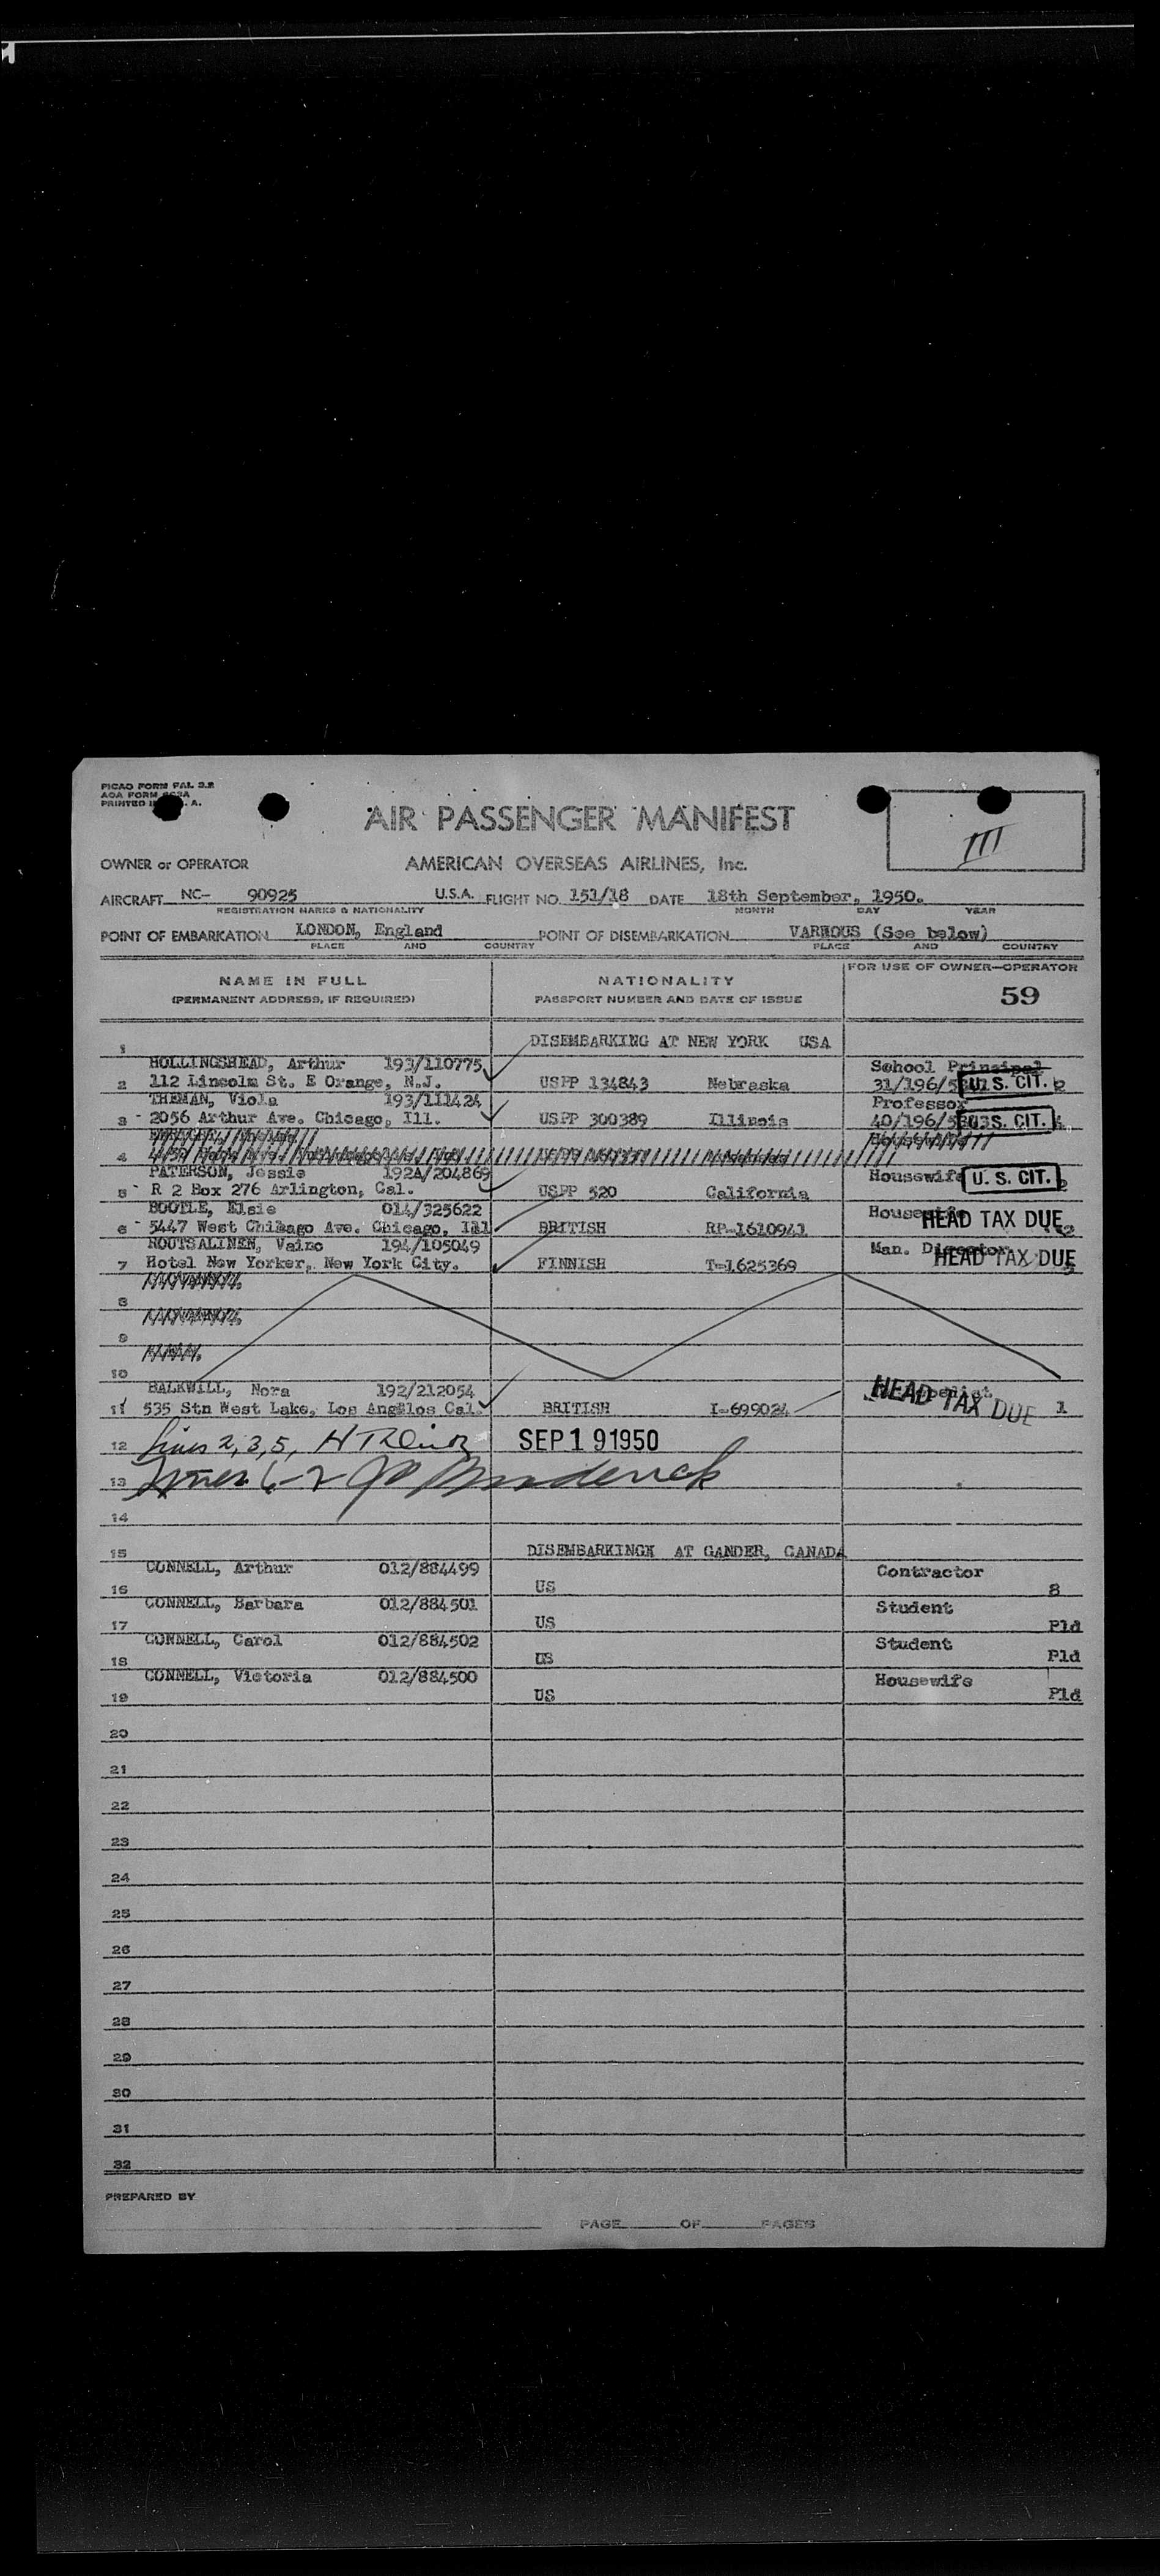 PICAO FORM PAL 2.2
AOA FORM
PRINTED IN U. S. A.
AIR PASSENGER MANIFEST
III
OWNER or OPERATOR AMERICAN OVERSEAS AIRLINES, Inc.
AIRCRAFT NC- 90925 U.S.A. FLIGHT NO. 151/18 DATE 18th September, 1950.
REGISTRATION MARKS & NATIONALITY MONTH DAY YEAR
POINT OF EMBARKATION LONDON, England POINT OF DISEMBARKATION VARHOUS (See below)
PLACE AND COUNTRY PLACE AND COUNTRY
NAME IN FULL NATIONALITY FOR USE OF OWNER—OPERATOR
(PERMANENT ADDRESS, IF REQUIRED) PASSPORT NUMBER AND DATE OF ISSUE 59
1 DISEMBARKING AT NEW YORK USA
HOLLINGSHEAD, Arthur 193/110775 School Principal
2 112 Lincoln St. E Orange, N.J. USPP 134843 Nebraska 31/196/5 U. S. CIT. 2
THEMAN, Viola 193/111424 Professor
3 - 2056 Arthur Ave. Chicago, Ill. USPP 300389 Illinois 40/196/5 U. S. CIT.
4
PATERSON, Jessie 192A/204869 Housewife U. S. CIT.
5 - R 2 Box 276 Arlington, Cal. USPP 520 California
BOOTLE, Elsie 014/325622 Housewife
6 - 5447 West Chikago Ave. Chicago, Ill BRITISH RP-1610941 HEAD TAX DUE
ROUTSALINEN, Vaino 194/105049 Man. Director
7 Hotel New Yorker, New York City. FINNISH T-1625369 HEAD TAX DUE
8
9
10
BALKWILL, Nora 192/212054
11 535 Stn West Lake, Los Angelos Cal. BRITISH I-699024 HEAD TAX DUE 1
12 Lines 2, 3, 5, SEP 1 9 1950
13 Lines 6-7 Broderick
14
15 DISEMBARKINGK AT GANDER, CANADA
CONNELL, Arthur 012/884499 Contractor
16 US 8
CONNELL, Barbara 012/884501 Student
17 US Pld
CONNELL, Carol 012/884502 Student
18 US Pld
CONNELL, Victoria 012/884500 Housewife
19 US Pld
20
21
22
23
24
25
26
27
28
29
30
31
32
PREPARED BY
PAGE OF PAGES